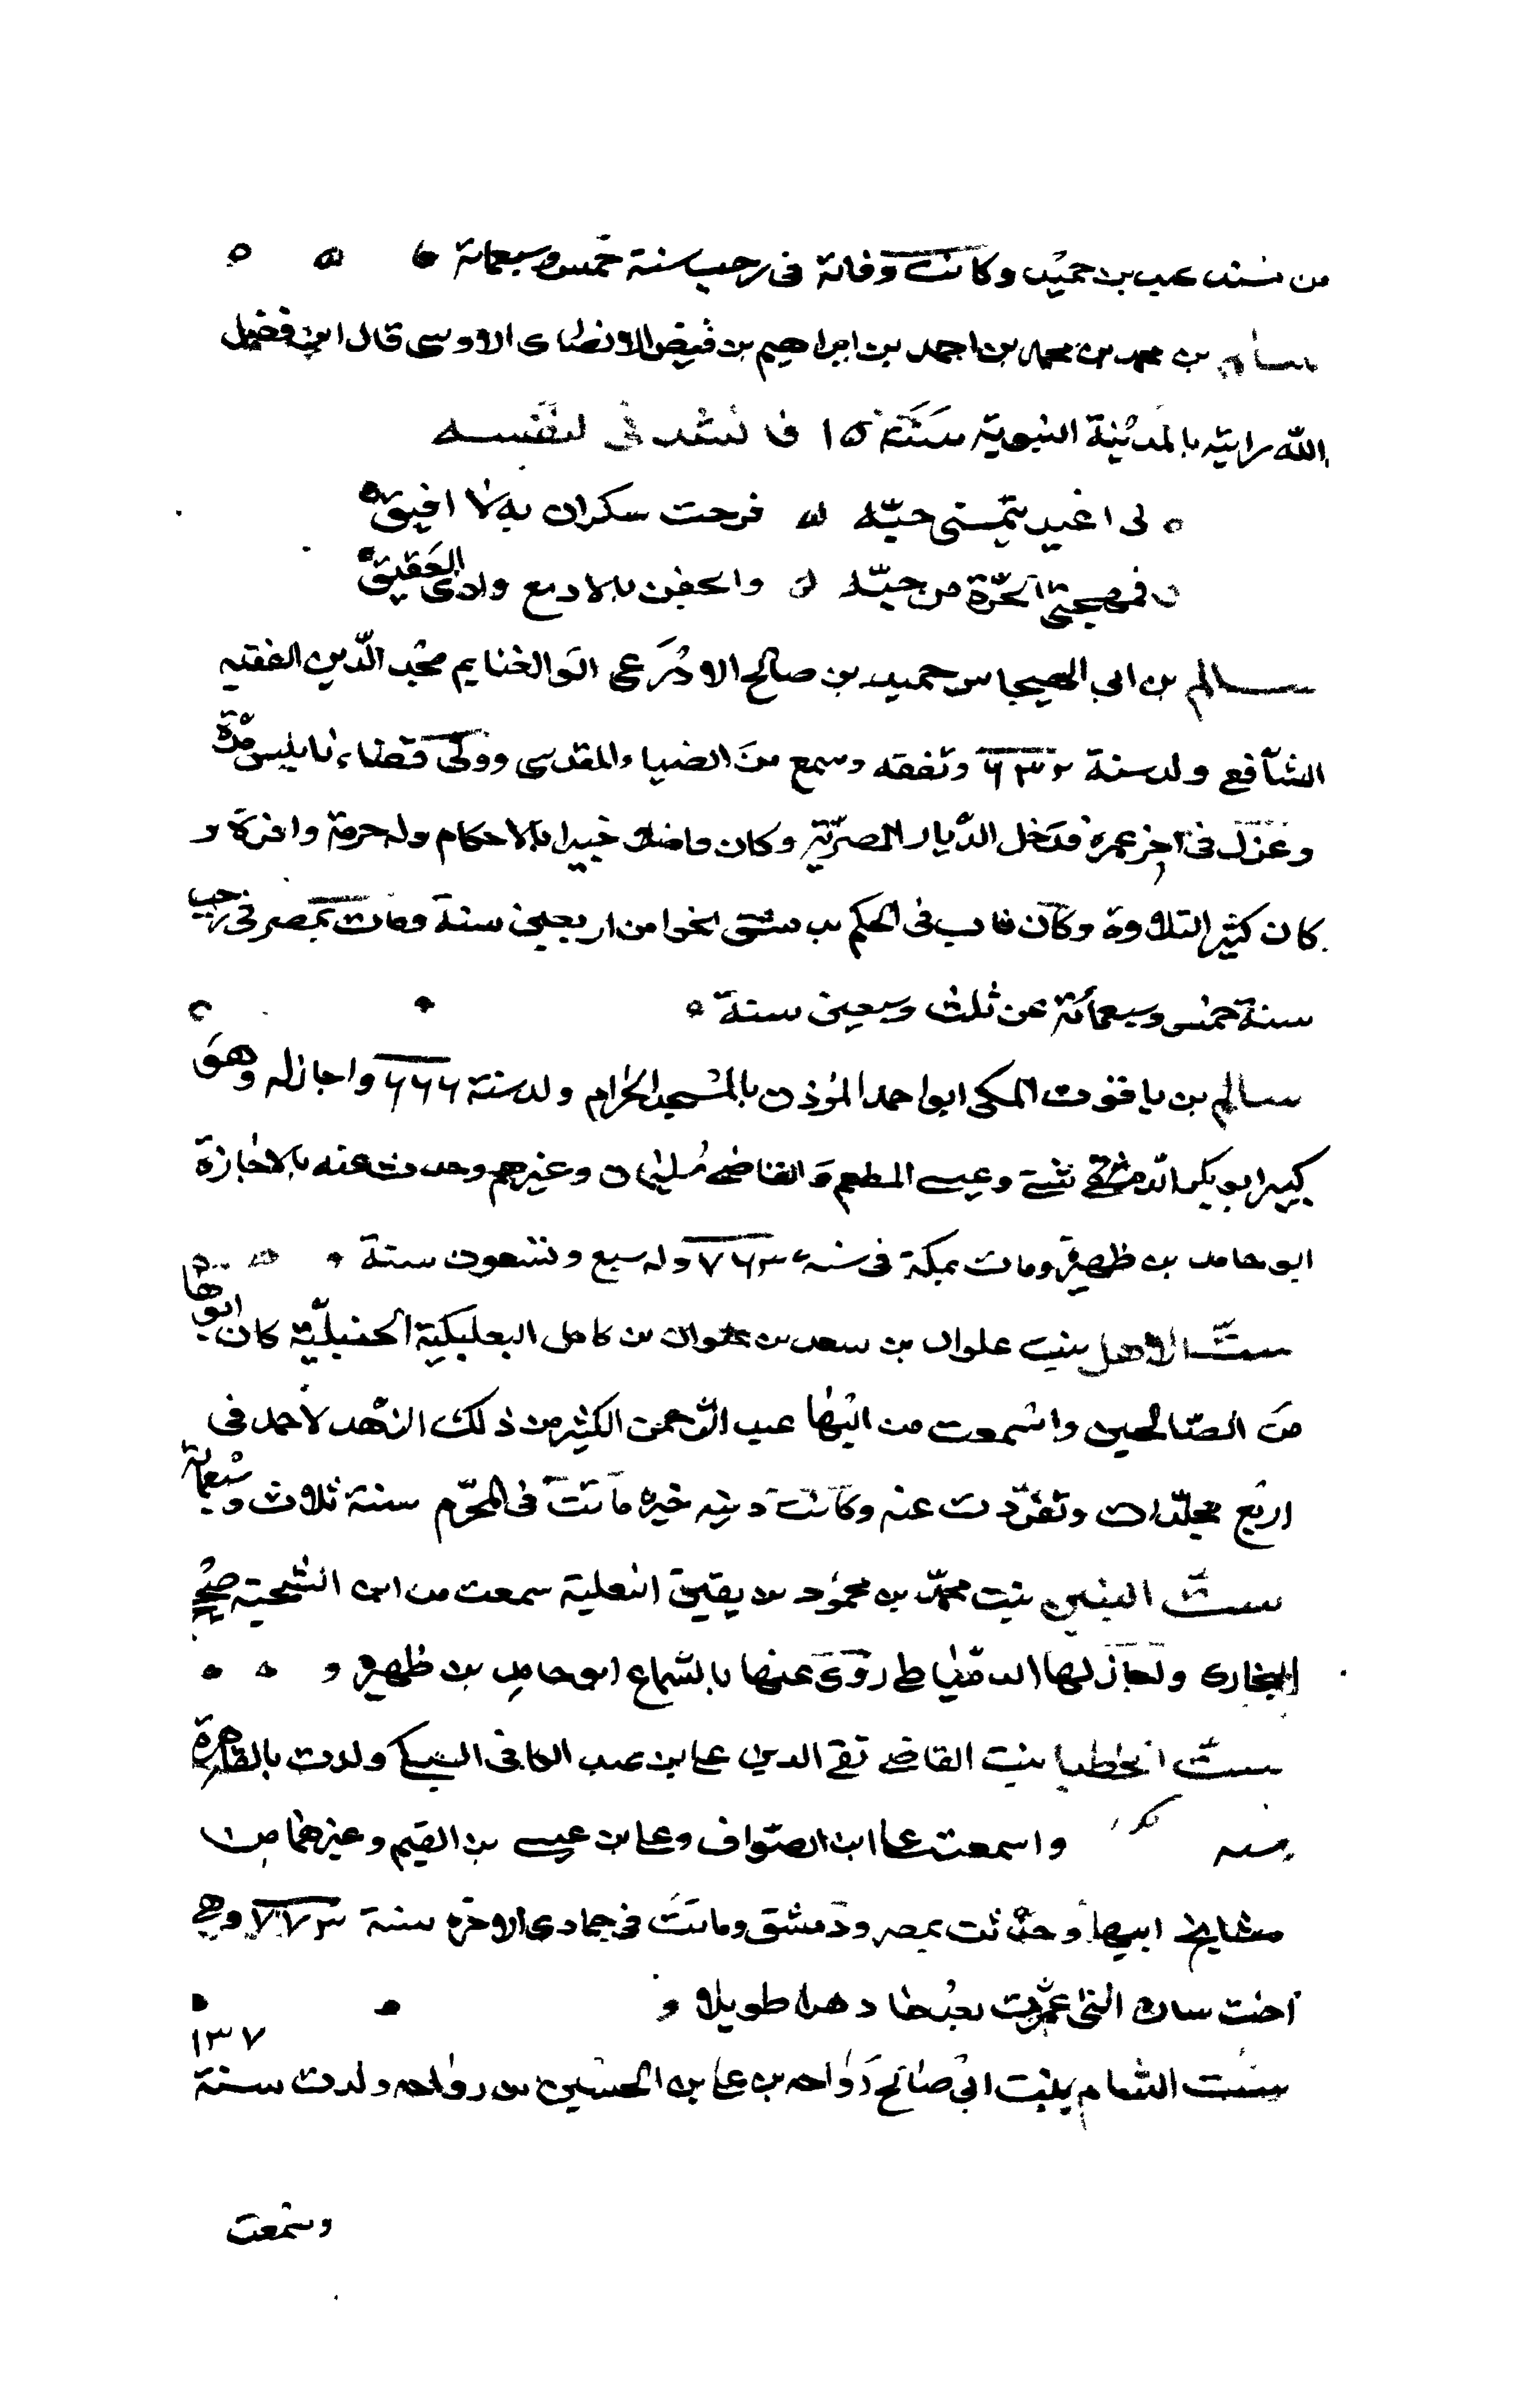 من مسند عبد بن حميد وكانت وفاته فى رجب سنة خمس وسبعمائة
سالم بن محمد بن محمد بن احمد بن ابراهيم بن فيض الانصارى الاوسى قال ابن فضل
الله رايته بالمدينة النبوية سنة ١٥ فانشدنى لنفسه
لى اغيد تيمنى حبّه فرحت سكران به لا افيق
فمهجتى الحرّة من حبّه والجفن بالادمع وادى العقيق
سالم بن ابى الهيجا بن حميد بن صالح الاذرعى ابو الغنايم مجد الدّين الفقيه
الشافعى ولد سنة ٦٣٢ وتفقه وسمع من الضياء المقدسى وولى قضاء نابلس مدّة
وعزل فى اخر عمره فدخل الدّيار المصريّة وكان فاضلا خبيرا بالاحكام وله حرمة وافرة و
كان كثير التلاوة وكان ناب فى الحكم بدمشق نحوا من اربعين سنة ومات بمصر فى رجب
سنة خمس وسبعمائة عن ثلث وسبعين سنة
سالم بن ياقوت المكى ابو احمد المؤذن بالمسجد الحرام ولد سنة ٦٦٦ واجاز له وهو
كبير ابو بكر الدمشقى وعيسى المطعم والقاضى سليمان وغيرهم وحدث عنه بالاجازة
ابو حامد بن ظهيرة ومات بمكة فى سنة ٧٦٣ وله سبع وتسعون سنة
ستّ الاهل بنت علوان بن سعد بن علوان بن كامل البعلبكية الحنبليّة كان ابوها
من الصّالحين واسمعت من البها عبد الرّحمن الكثير من ذلك الزهد لاحمد فى
اربع مجلّدات وتفرّدت عنه وكانت دينه خيره ماتت فى المحرّم سنة ثلاث وسبعمائة
ستّ البنين بنت محمّد بن محمود بن يقين البعلية سمعت من ابن الشحنة صحيح
البخارى واجاز لها الدمياطى روى عنها بالسّماع ابو حامد بن ظهيرة
ستّ الخطبا بنت القاضى تقى الدين على بن عبد الكافى السبكى ولدت بالقاهرة
سنه واسمعت على ابن الصّواف وعلى بن عيسى بن القيم وغيرهما من
مشايخ ابيها وحدّثت بمصر ودمشق وماتت فى جمادى الاخرة سنة ٧٧٣ وهى
اخت سارة التى عمّرت بعدها دهرا طويلا
١٣٧
ستّ الشام بنت ابى صالح رواحه بن على بن الحسين بن رواحه ولدت سنة
وسمعت